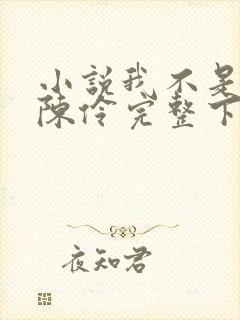 小說我不是
陳伶完整下
夜知君